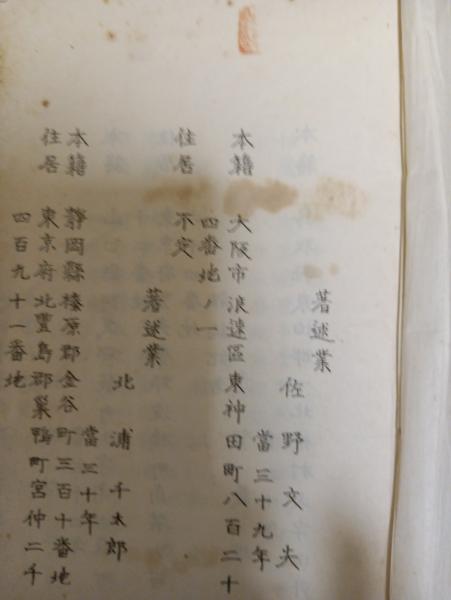 著述業
佐野文夫
當三十九年
本籍 大阪市浪速區東神田町八百二十
四番地ノ一
住居 不定
著述業
北浦千太郎
當三十年
本籍 靜岡縣榛原郡金谷町三百十番地
住居 東京府北豐島郡巢鴨町宮仲二千
四百九十一番地